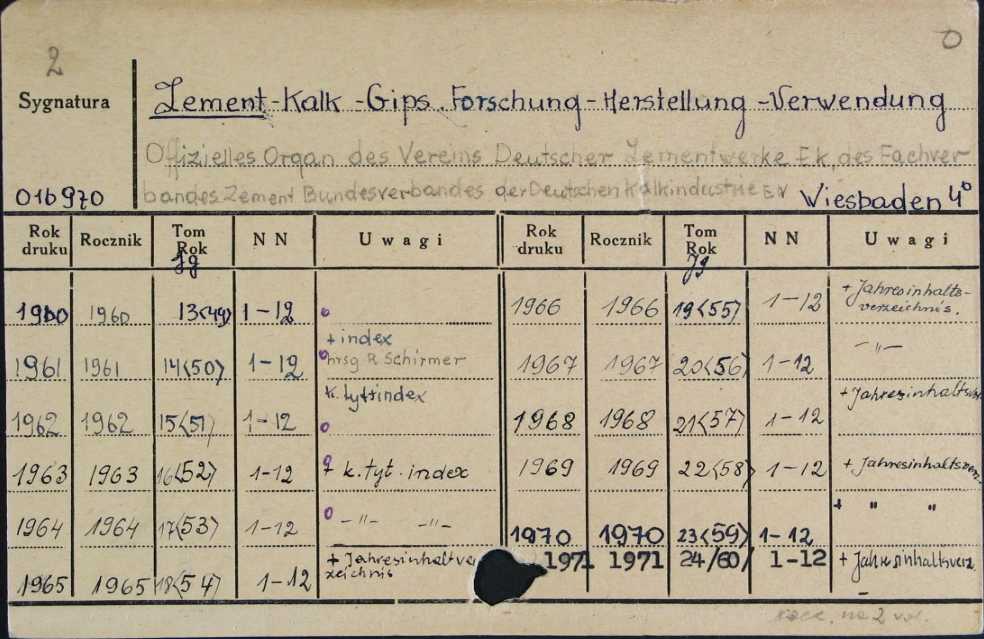 2
0
Sygnatura
Zement-Kalk-Gips. Forschung-Herstellung-Verwendung
Offizielles Organ des Vereins Deutscher Zementwerke E.V., des Fachver-
bandes Zement Bundesverbandes der Deutschen Kalkindustrie E.V
016970 Wiesbaden 4°
Rok druku Rocznik Tom Rok Jg N N Uwagi Rok druku Rocznik Tom Rok Jg N N Uwagi
1960 1960 13<49> 1-12 1966 1966 19<55> 1-12 + Jahresinhalts-
verzeichnis.
1961 1961 14<50> 1-12 + index
hrsg R Schirmer 1967 1967 20<56> 1-12 - " -
1962 1962 15<51> 1-12 k. tyt. index 1968 1968 21<57> 1-12
1963 1963 16<52> 1-12 k. tyt. index 1969 1969 22<58> 1-12
1964 1964 17<53> 1-12 - " - - " - 1970 1970 23<59> 1-12 + " "
1965 1965 18<54> 1-12 + Jahresinhaltver
zeichnis 1971 1971 24/60/ 1-12 + Jahresinhaltsverz